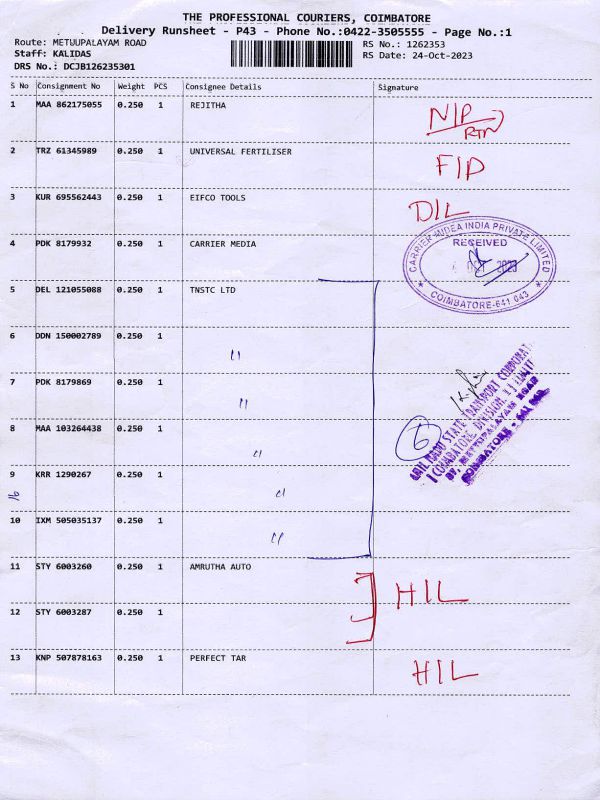 THE PROFESSIONAL COURIERS, COIMBATORE
Delivery Runsheet - P43 - Phone No.:0422-3505555 - Page No.:1
Route: METUUPALAYAM ROAD
RS No.: 1262353
Staff: KALIDAS
RS Date: 24-Oct-2023
DRS No.: DCJB126235301
S No Consignment No Weight PCS Consignee Details Signature
1 MAA 862175055 0.250 1 REJITHA N/P
RTN
2 TRZ 61345989 0.250 1 UNIVERSAL FERTILISER F/D
3 KUR 695562443 0.250 1 EIFCO TOOLS D/L
4 PDK 8179932 0.250 1 CARRIER MEDIA
CARRIER INDEA INDIA PRIVATE LIMITED
RECEIVED
OCT 2023
COIMBATORE-641 043
5 DEL 121055088 0.250 1 TNSTC LTD
6 DDN 150002789 0.250 1 "
7 PDK 8179869 0.250 1 "
8 MAA 103264438 0.250 1 "
6
TAMIL NADU STATE TRANSPORT CORPORAT
COIMBATORE DIVISION
METTUPALAYAM ROAD
COIMBATORE - 641 043
9 KRR 1290267 0.250 1 "
10 IXM 505035137 0.250 1 "
11 STY 6003260 0.250 1 AMRUTHA AUTO H/L
12 STY 6003287 0.250 1
13 KNP 507878163 0.250 1 PERFECT TAR H/L